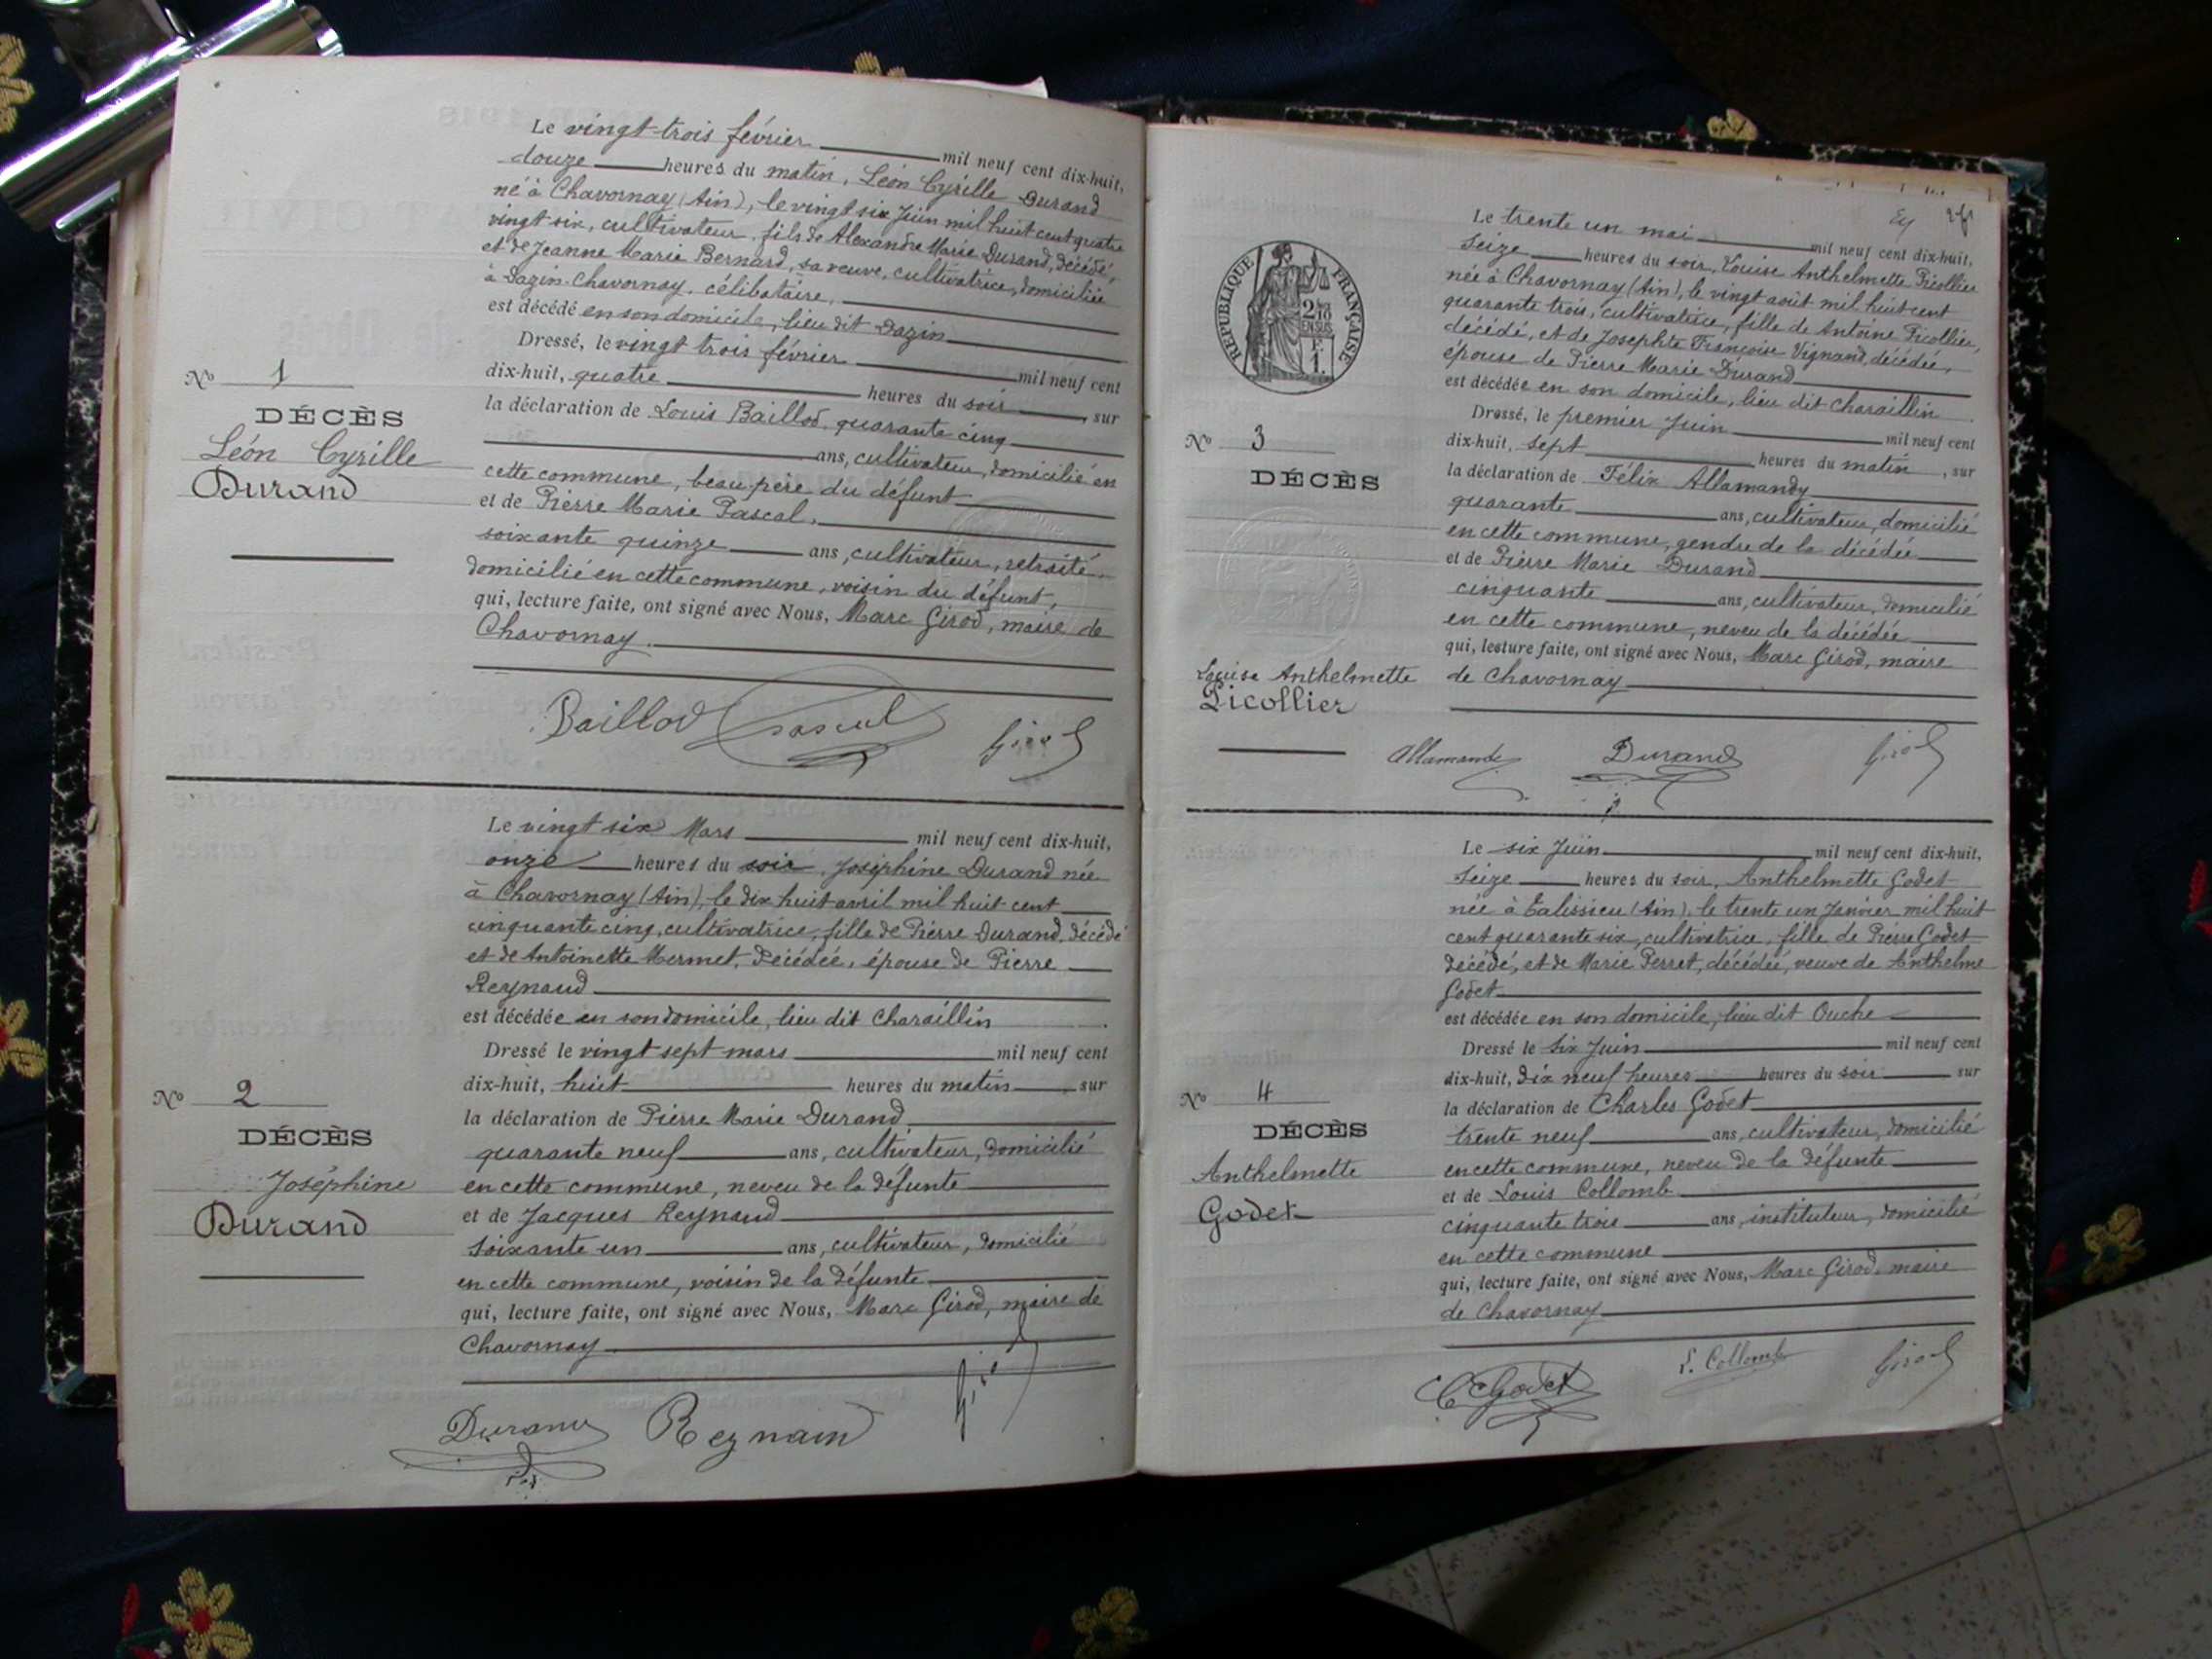 Le vingt-trois février mil neuf cent dix-huit,
douze heures du matin, Léon Cyrille Durand
né à Chavornay (Ain), le vingt six Juin mil huit cent quatre
vingt six, cultivateur, fils de Alexandre Marie Durand, décédé
et de Jeanne Marie Bernard, sa veuve, cultivatrice, domiciliée
à Dazin-Chavornay, célibataire,
est décédé en son domicile, lieu dit Dazin
Dressé, le vingt trois février mil neuf cent
dix-huit, quatre heures du soir, sur
la déclaration de Louis Baillod, quarante cinq
ans, cultivateur, domicilié en
cette commune, beau-père du défunt
et de Pierre Marie Pascal,
soixante quinze ans, cultivateur, retraité,
domicilié en cette commune, voisin du défunt,
qui, lecture faite, ont signé avec Nous, Marc Girod, maire de
Chavornay.
No 1
DÉCÈS
Léon Cyrille
Durand
Baillod Pascal Girod
Le vingt six Mars mil neuf cent dix-huit,
onze heures du soir, Joséphine Durand née
à Chavornay (Ain), le dix huit avril mil huit cent
cinquante cinq, cultivatrice, fille de Pierre Durand, décédé
et de Antoinette Mermet, décédée, épouse de Pierre
Reynaud
est décédée en son domicile, lieu dit Charaillin
Dressé le vingt sept mars mil neuf cent
dix-huit, huit heures du matin, sur
la déclaration de Pierre Marie Durand
quarante neuf ans, cultivateur, domicilié
en cette commune, neveu de la défunte
et de Jacques Reynaud
soixante un ans, cultivateur, domicilié
en cette commune, voisin de la défunte
qui, lecture faite, ont signé avec Nous, Marc Girod, maire de
Chavornay
No 2
DÉCÈS
Joséphine
Durand
Durand Reynaud Girod
RÉPUBLIQUE FRANÇAISE
2/10
EN SUS
F.
1.
Le trente un mai mil neuf cent dix-huit,
seize heures du soir, Louise Anthelmette Picollier
née à Chavornay (Ain), le vingt août mil huit cent
quarante trois, cultivatrice, fille de Antoine Picollier,
décédé, et de Josephte Françoise Vignand, décédée,
épouse de Pierre Marie Durand
est décédée en son domicile, lieu dit Charaillin
Dressé, le premier Juin mil neuf cent
dix-huit, sept heures du matin, sur
la déclaration de Félix Allamandy
quarante ans, cultivateur, domicilié
en cette commune, gendre de la décédée
et de Pierre Marie Durand
cinquante ans, cultivateur, domicilié
en cette commune, neveu de la décédée
qui, lecture faite, ont signé avec Nous, Marc Girod, maire
de Chavornay
No 3
DÉCÈS
Louise Anthelmette
Picollier
Allamandy Durand Girod
Le six Juin mil neuf cent dix-huit,
seize heures du soir, Anthelmette Godet
née à Talissieu (Ain), le trente un Janvier mil huit
cent quarante six, cultivatrice, fille de Pierre Godet
décédé, et de Marie Perret, décédée, veuve de Anthelme
Godet
est décédée en son domicile, lieu dit Ouche
Dressé le six Juin mil neuf cent
dix-huit, dix neuf heures heures du soir sur
la déclaration de Charles Godet
trente neuf ans, cultivateur, domicilié
en cette commune, neveu de la défunte
et de Louis Collomb
cinquante trois ans, instituteur, domicilié
en cette commune
qui, lecture faite, ont signé avec Nous, Marc Girod, maire
de Chavornay
No 4
DÉCÈS
Anthelmette
Godet
C Godet L. Collomb Girod